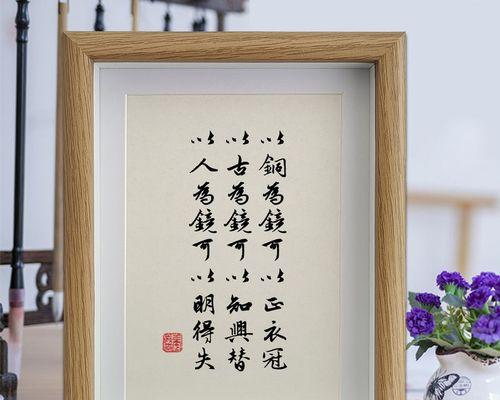 以銅為鏡可以正衣冠
以古為鏡可以知興替
以人為鏡可以明得失